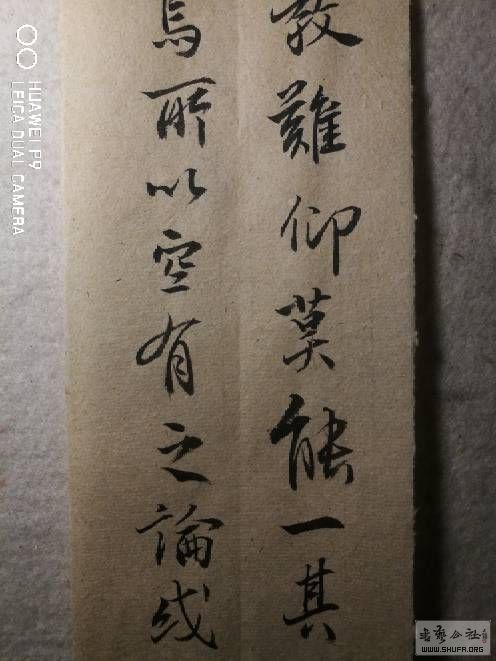 教難仰莫能一其
焉所以空有之論或
HUAWEI P9
LEICA DUAL CAMERA
書藝公社
WWW.SHUFA.ORG